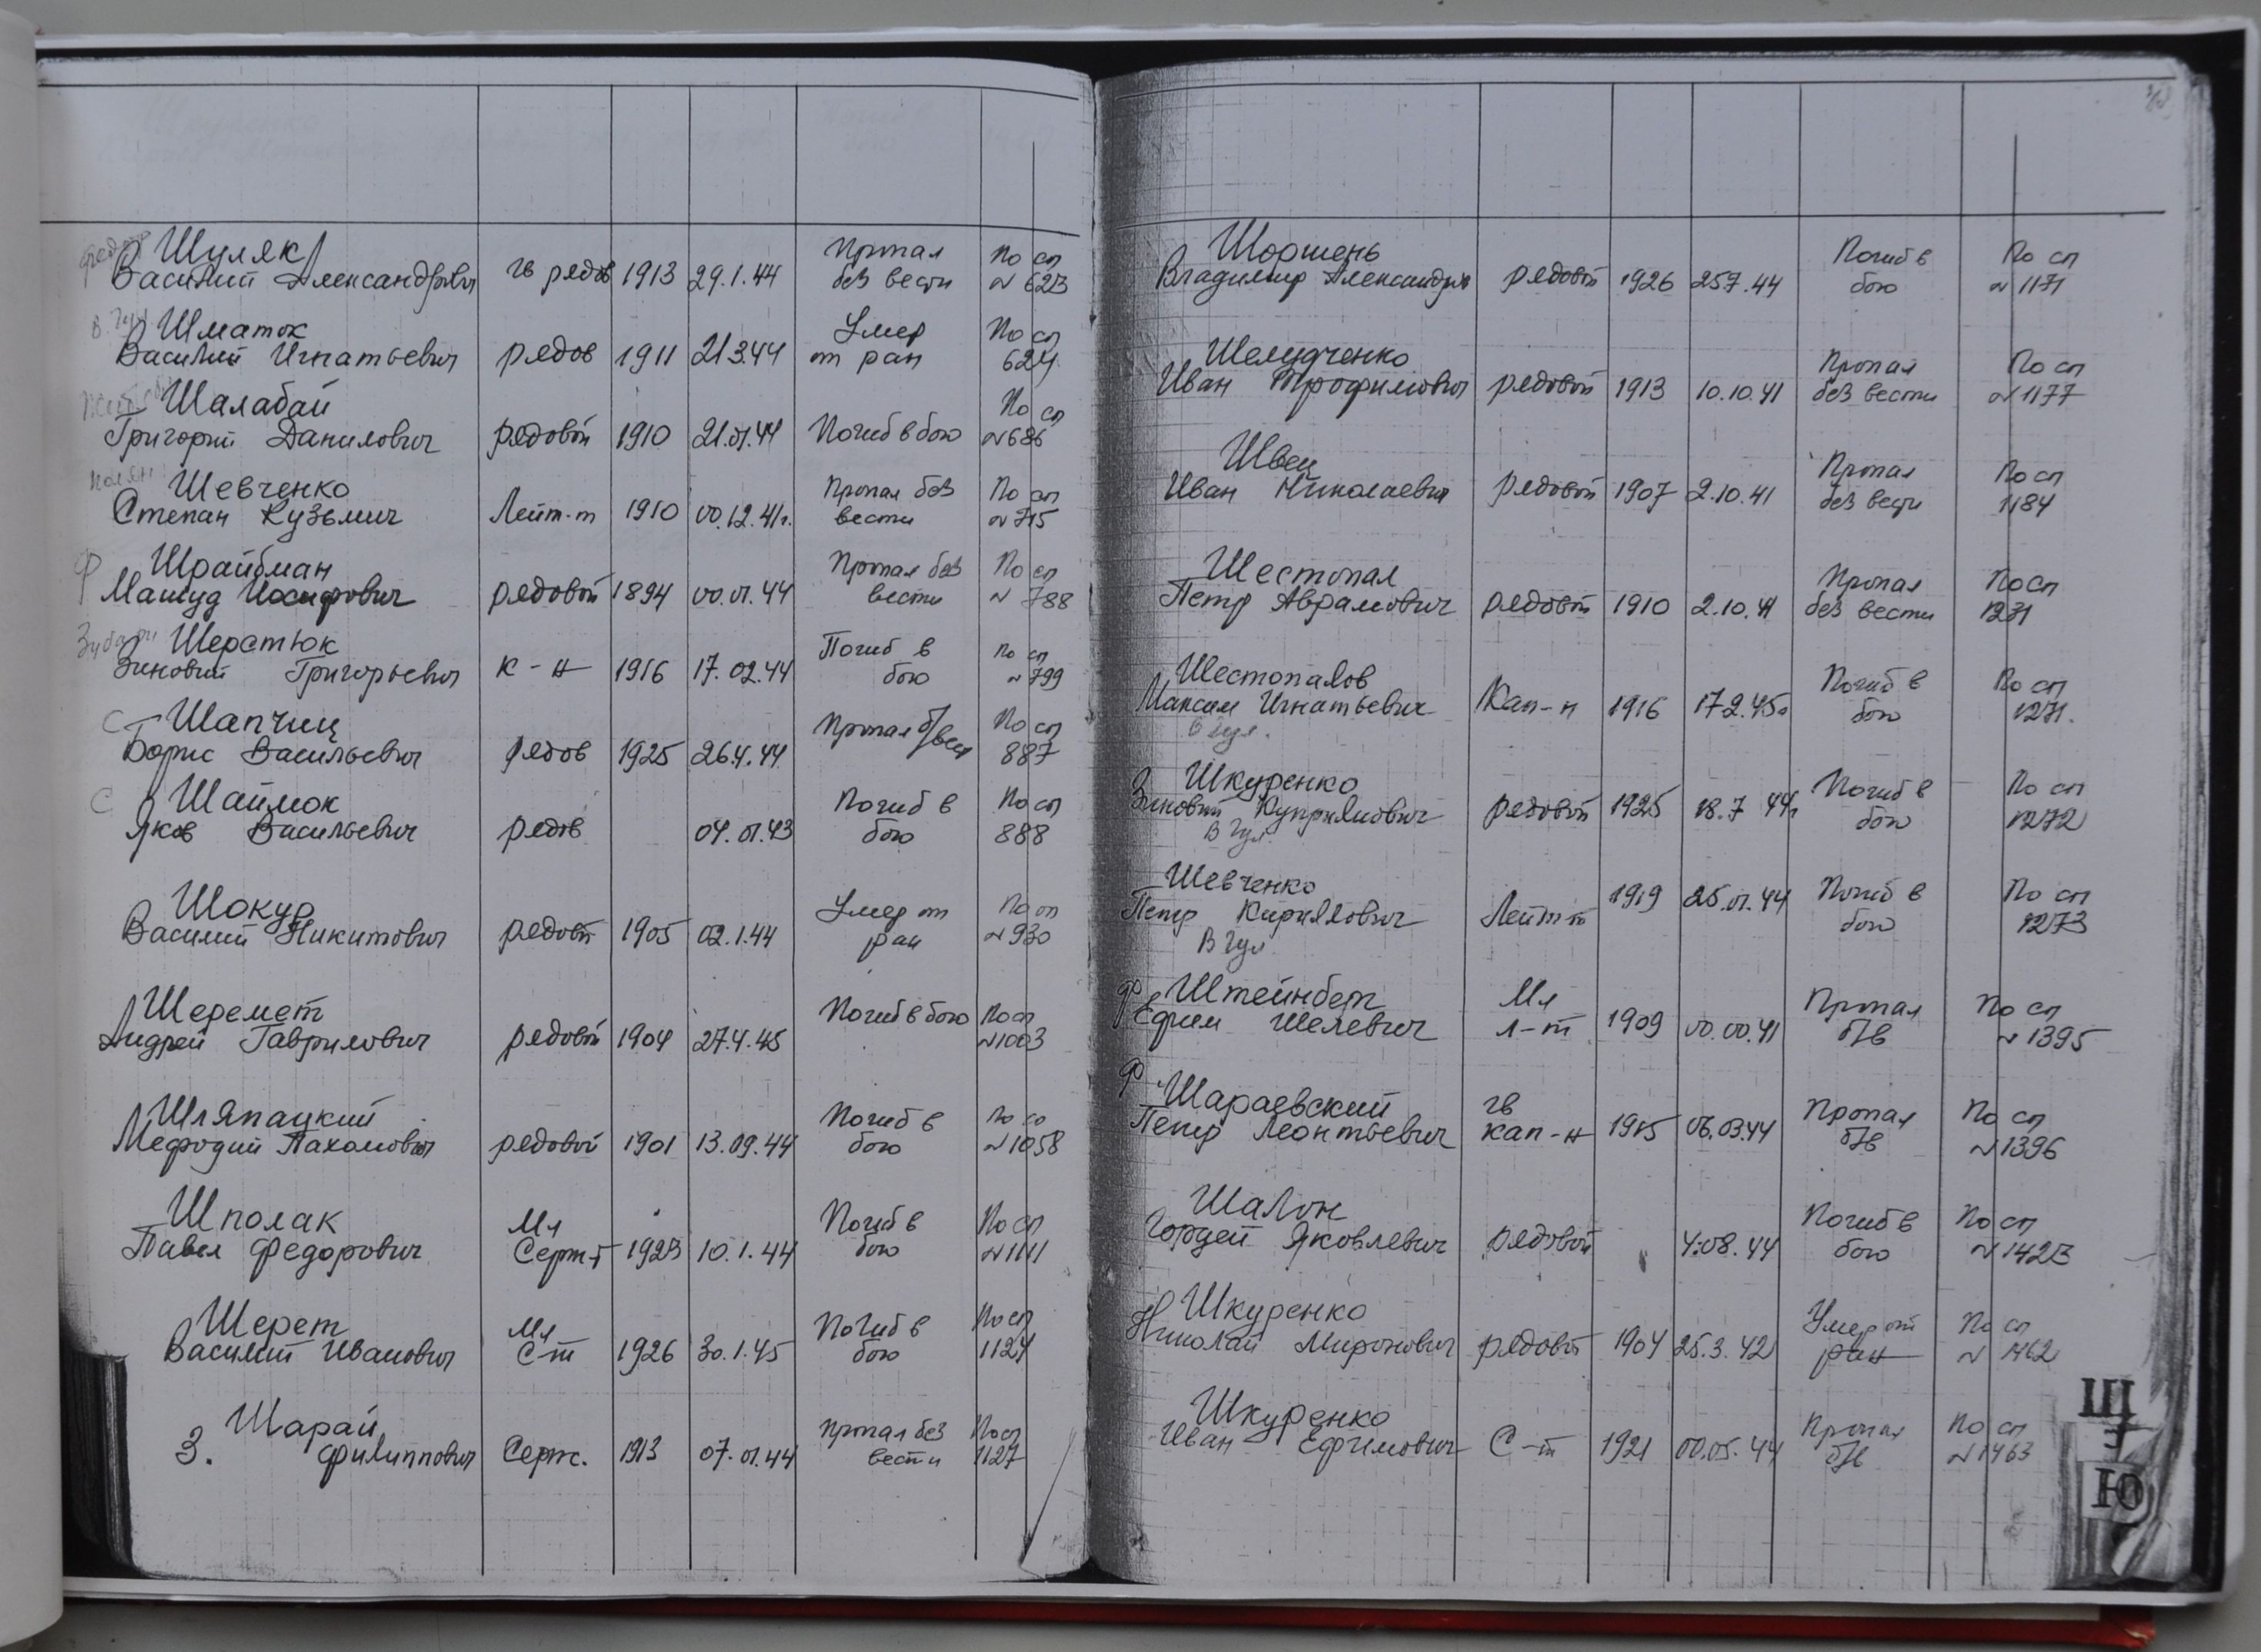 Шуляк
Василий Александрович гв рядов 1913 29.1.44 Пропал без вести По сп № 623
Шматок
Василий Игнатьевич рядов 1911 21.3.44 Умер от ран По сп 624
Шалабай
Григорий Данилович рядовой 1910 21.01.44 Погиб в бою По сп № 686
Шевченко
Степан Кузьмич Лейт-т 1910 00.12.41г. Пропал без вести По сп № 715
Ф Шрайбман
Иосифович рядовой 1894 00.01.44 Пропал без вести По сп № 788
Шерстюк
Зиновий Григорьевич к-н 1916 17.02.44 Погиб в бою По сп № 799
С Шапчиц
Борис Васильевич рядов 1925 26.4.44 Пропал б/вести По сп 887
С Шаймок
Яков Васильевич рядов 04.01.43 Погиб в бою По сп 888
Шокур
Василий Никитович рядовой 1905 02.1.44 Умер от ран По сп № 930
Шеремет
Андрей Гаврилович рядовой 1904 27.4.45 Погиб в бою По сп № 1003
Шляпацкий
Мефодий Пахомович рядовой 1901 13.09.44 Погиб в бою По сп № 1058
Шполак
Павел Федорович Мл Серж-т 1923 10.1.44 Погиб в бою По сп № 1111
Шерет
Василий Иванович Мл С-т 1926 30.1.45 Погиб в бою По сп 1124
Шарай
З. Филиппович Серж. 1913 07.01.44 Пропал без вести По сп 1127
Шоршень
Владимир Александр рядовой 1926 25.7.44 Погиб в бою По сп № 1171
Шелудченко
Иван Трофимович рядовой 1913 10.10.41 Пропал без вести По сп № 1177
Швец
Иван Николаевич рядовой 1907 2.10.41 Пропал без вести По сп 1184
Шестопал
Петр Аврамович рядовой 1910 2.10.41 Пропал без вести По сп 1231
Шестопалов
Максим Игнатьевич Кап-н 1916 17.2.45 Погиб в бою По сп 1271.
В Гул.
Шкуренко
Зиновий Куприянович рядовой 1925 18.7 44г Погиб в бою По сп 1272
В Гул.
Шевченко
Петр Кириллович Лейт-т 1919 25.01.44 Погиб в бою По сп 1273
В Гул
Ф Штейнберг
Ефим Шелевич Мл л-т 1909 00.00.41 Пропал б/в По сп № 1395
Ф Шараевский
Петр Леонтьевич гв кап-н 1915 06.03.44 Пропал б/в По сп № 1396
Шалон
Гордей Яковлевич рядовой 4.08.44 Погиб в бою По сп № 1423
Шкуренко
Николай Миронович рядовой 1904 25.3.42 Умер от ран По сп № 1462
Шкуренко
Иван Ефимович С-т 1921 00.05.44 Пропал б/в По сп № 1463
Щ
Э
Ю